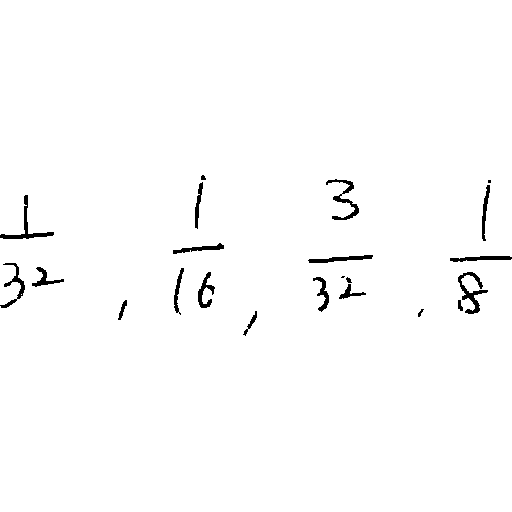 \frac{1}{32}, \frac{1}{16}, \frac{3}{32}, \frac{1}{8}